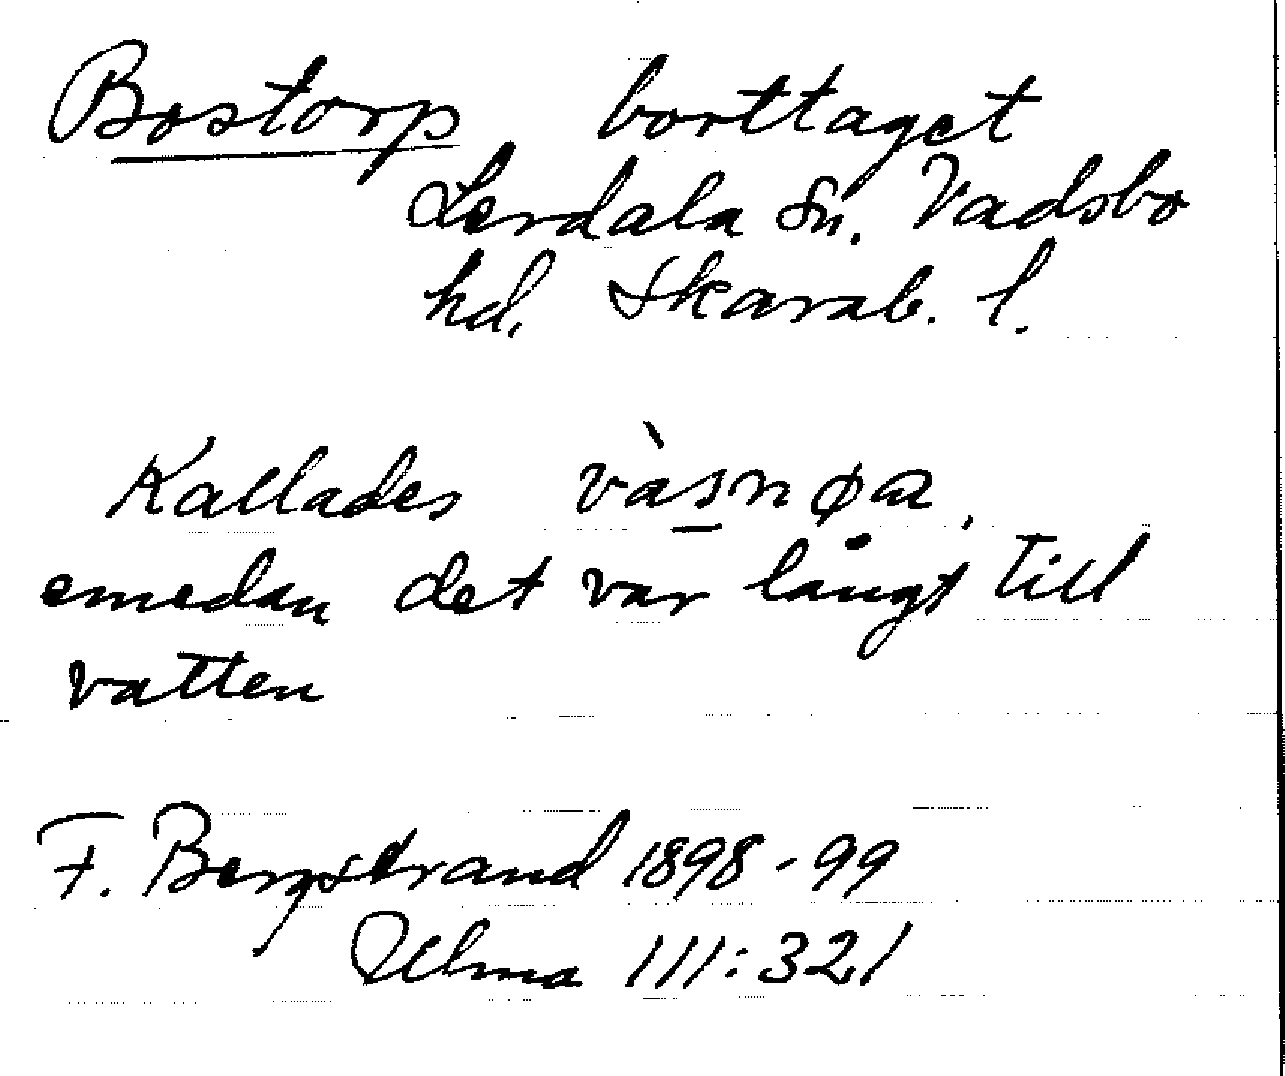 Bostorp borttaget
Lerdala sn. Vadsbo
hd. Skarab. l.
Kallades
emedan det var långt till
vatten
F. Bergstrand 1898-99
Ulma 111:321